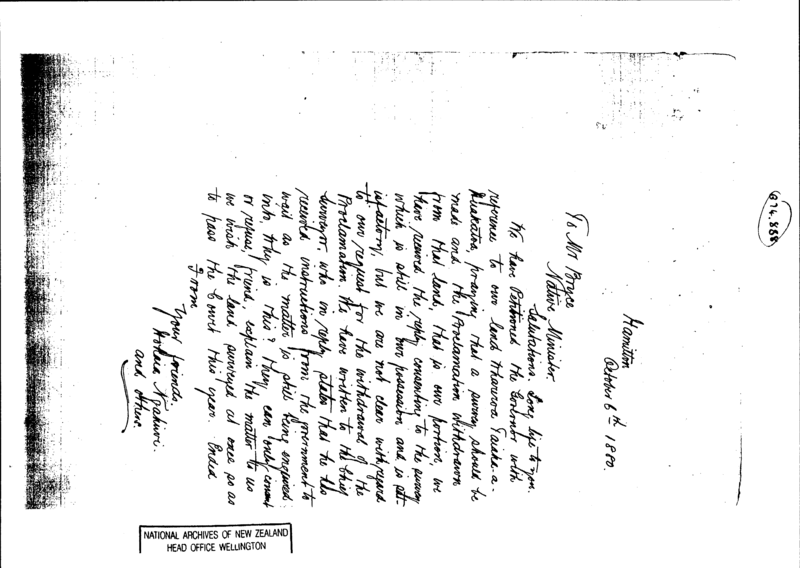 G 74.858
Hamilton
October 6th 1880.
To Mr Bryce
Native Minister.
Salutations. Love be to you.
We have Petitioned the Governor with
reference to our land Wharoroa Taiaha-a-
praying that a survey should be
made and the Proclamation withdrawn
from that land, that is our portion, we
have received the reply consenting to the survey
which is still in our possession and is sat-
isfactory, but we are not clear with regard
to our request for the withdrawal of the
Proclamation. We have written to the Chief
Surveyor who in reply states that he has
received instructions from the government to
wait as the matter is still being enquired
into. Why is this? They can only consent
or refuse, friend, explain the matter to us
we wish the land surveyed at once so as
to pass the Court this year. Ended
From
Your friends
Ngahiwi.
and others.
NATIONAL ARCHIVES OF NEW ZEALAND
HEAD OFFICE WELLINGTON